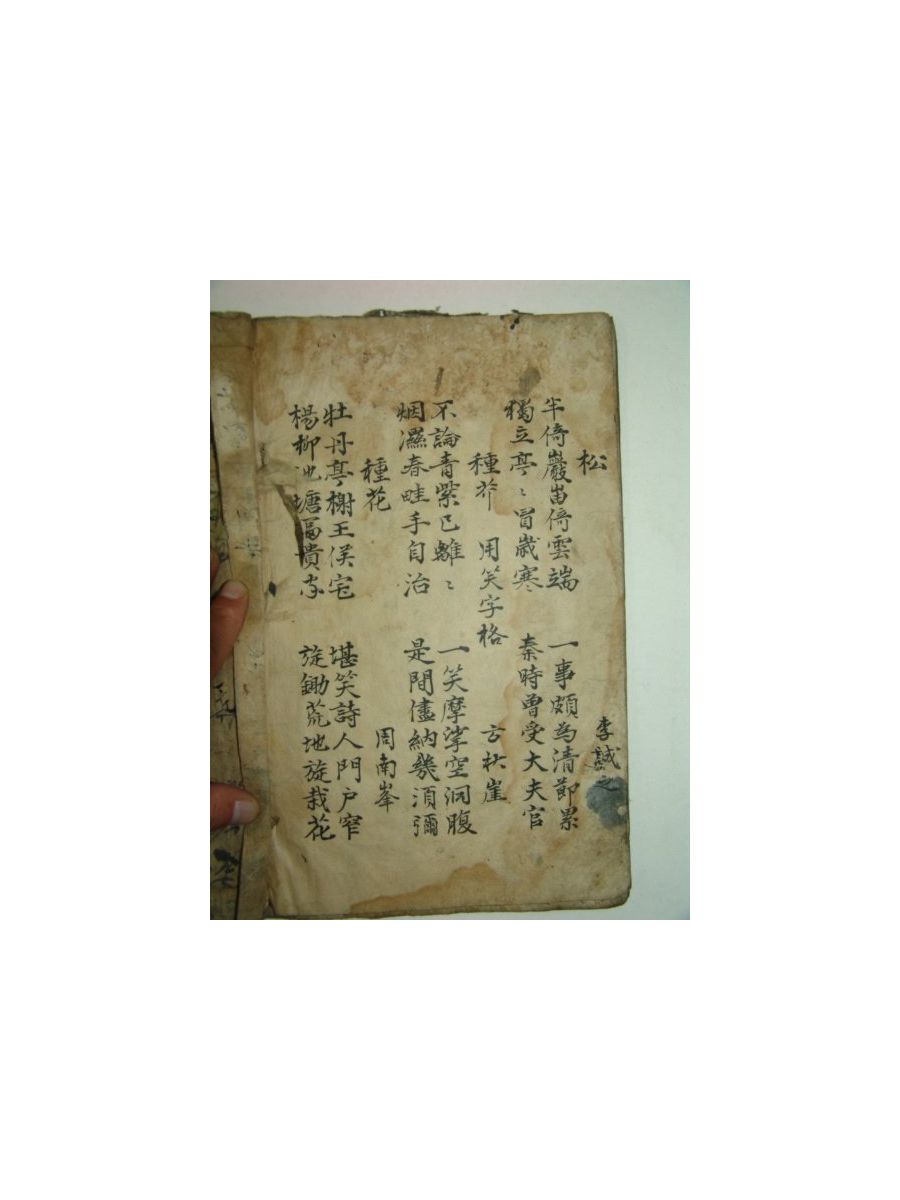 松 李誠之
半倚巖畄倚雲端 一事頗為清節累
獨立亭〻冒歲寒 秦時曾受大夫官
種芥 用笑字格 方秋崖
不論青紫已離〻 一笑摩挲空洞腹
烟濕春畦手自治 是間儘納幾須彌
種花 周南峯
牡丹亭榭王侯宅 堪笑詩人門户窄
楊柳池塘富貴家 旋鋤荒地旋栽花